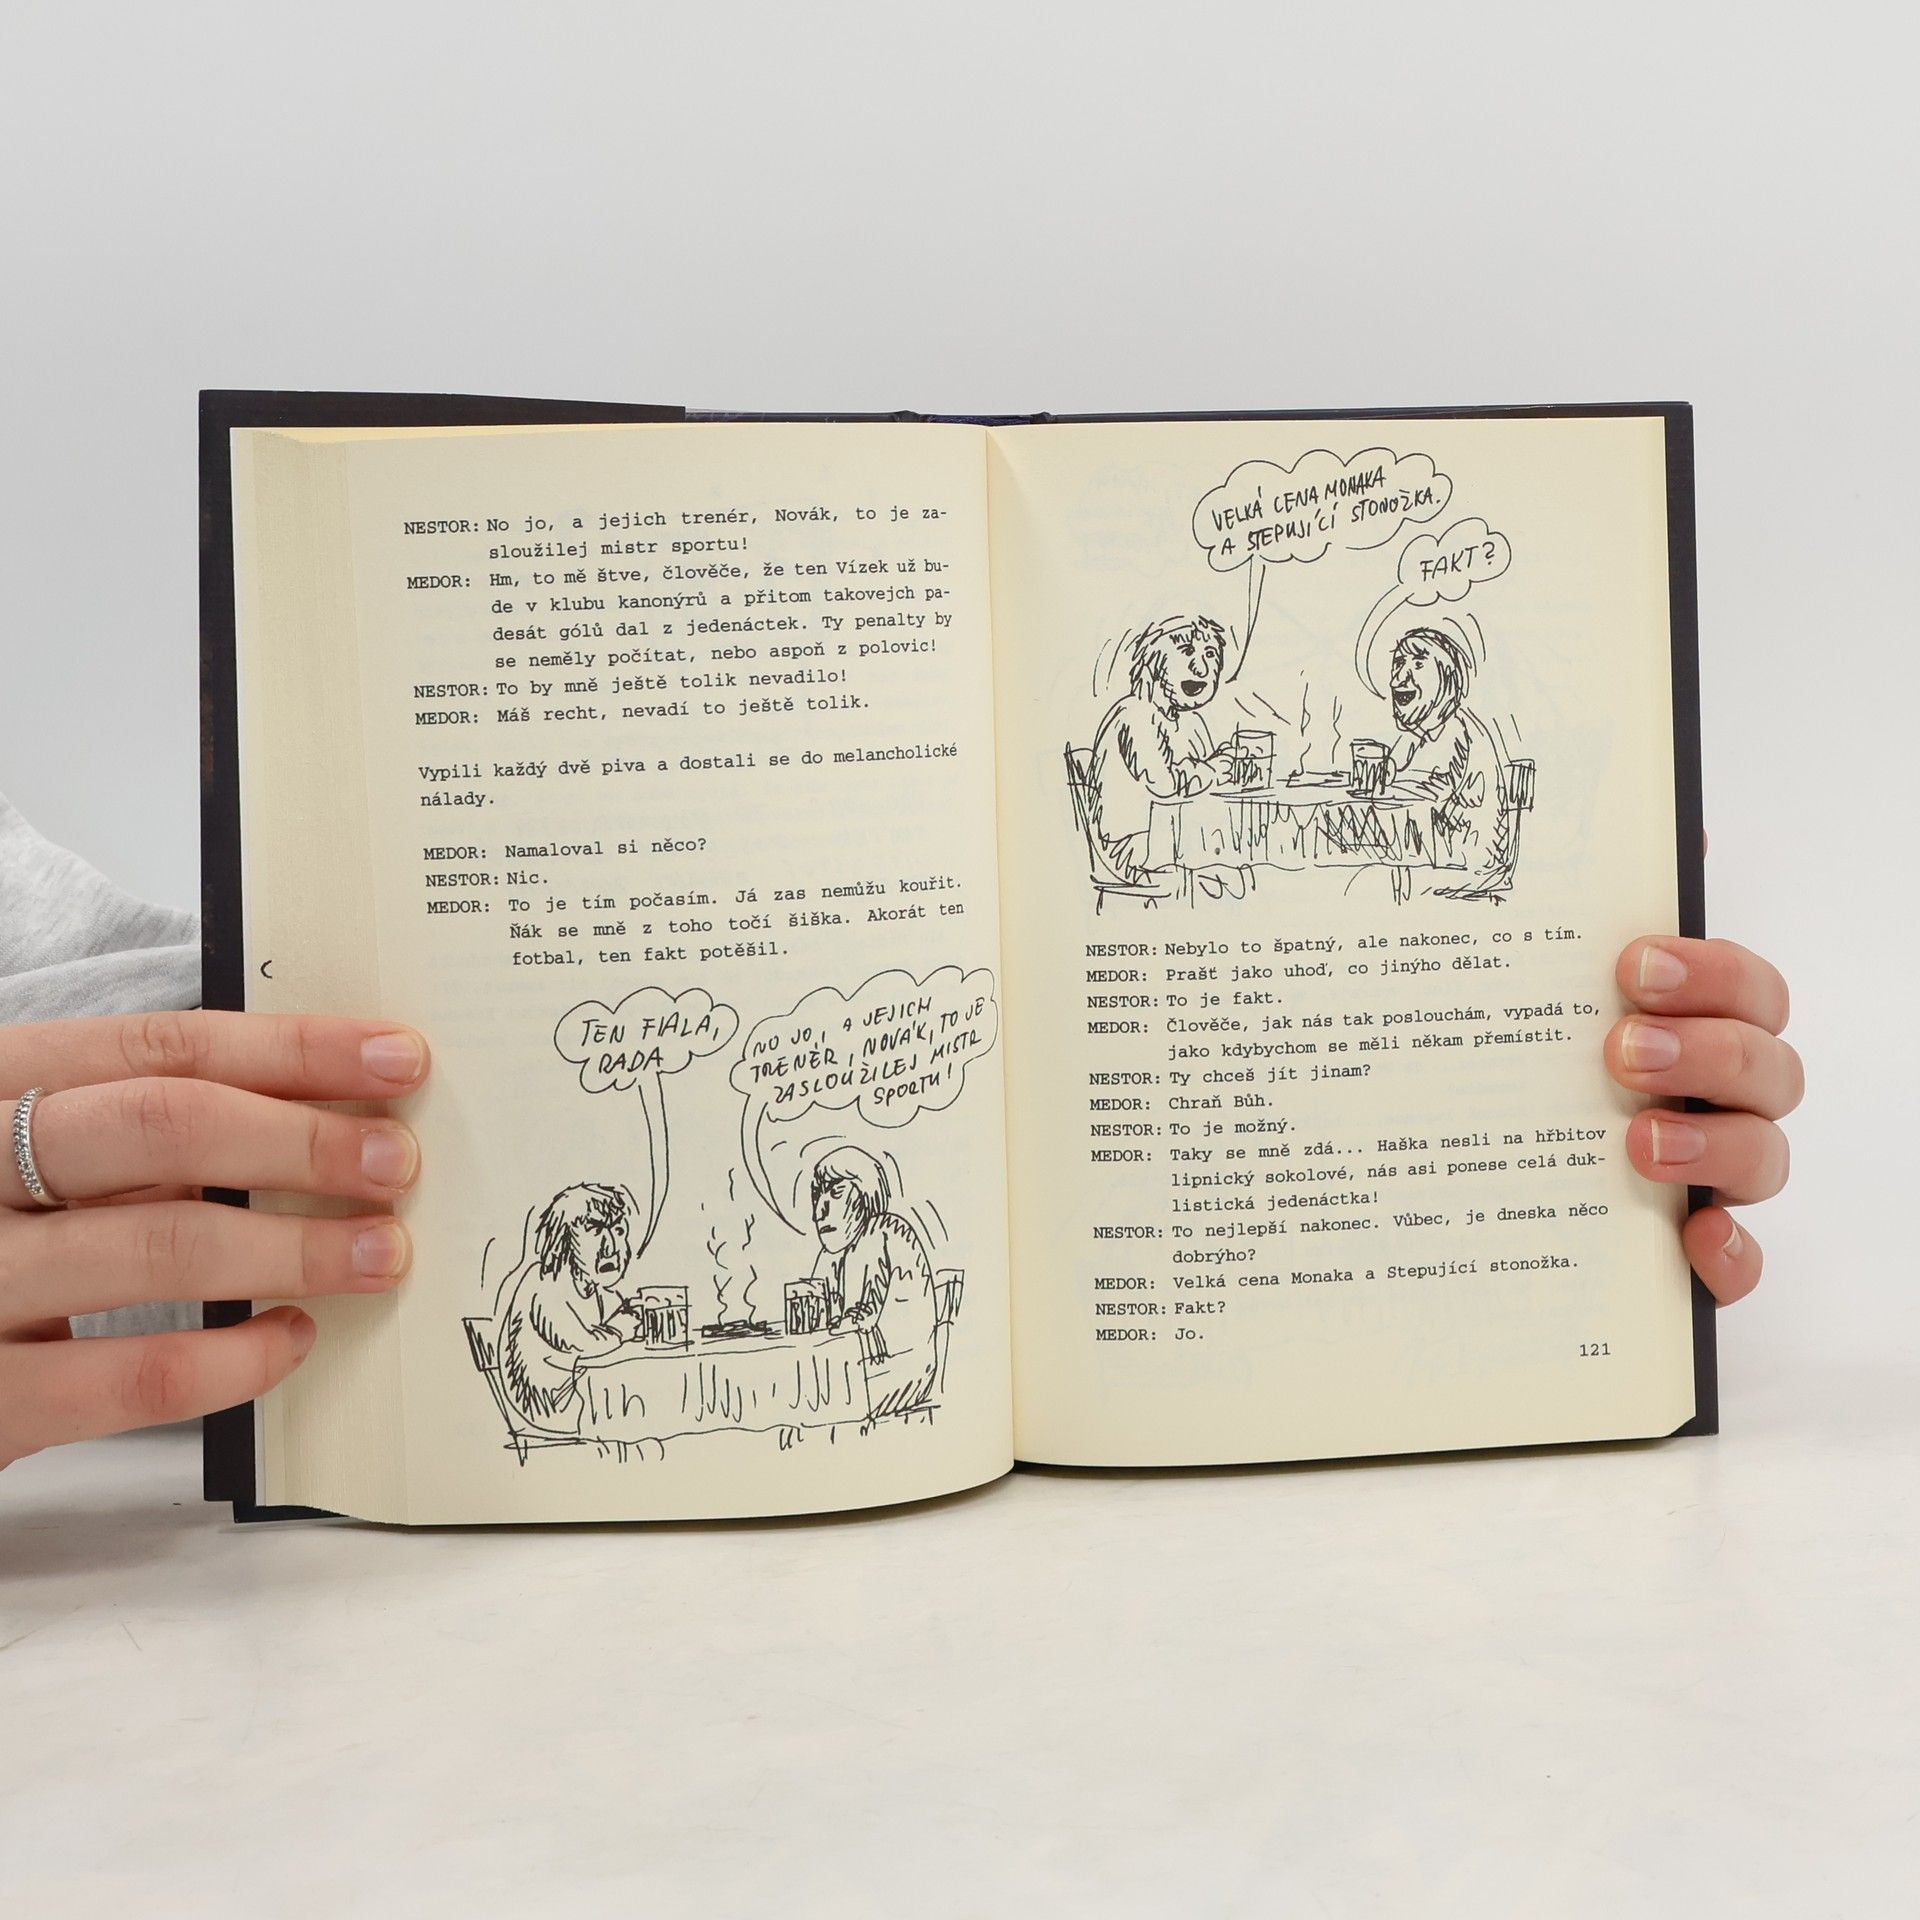 NESTOR: No jo, a jejich trenér, Novák, to je za-
sloužilej mistr sportu!
MEDOR: Hm, to mě štve, člověče, že ten Vízek už bu-
de v klubu kanonýrů a přitom takovejch pa-
desát gólů dal z jedenáctek. Ty penalty by
se neměly počítat, nebo aspoň z polovic!
NESTOR: To by mně ještě tolik nevadilo!
MEDOR: Máš recht, nevadí to ještě tolik.
Vypili každý dvě piva a dostali se do melancholické
nálady.
MEDOR: Namaloval si něco?
NESTOR: Nic.
MEDOR: To je tím počasím. Já zas nemůžu kouřit.
Ňák se mně z toho točí šiška. Akorát ten
fotbal, ten fakt potěšil.
TEN FIALA,
RADA
NO JO, A JEJICH
TRENÉR, NOVÁK, TO JE
ZASLOUŽILEJ MISTR
SPORTU!
VELKÁ CENA MONAKA
A STEPUJÍCÍ STONOŽKA.
FAKT?
NESTOR: Nebylo to špatný, ale nakonec, co s tím.
MEDOR: Prašť jako uhoď, co jinýho dělat.
NESTOR: To je fakt.
MEDOR: Člověče, jak nás tak poslouchám, vypadá to,
jako kdybychom se měli někam přemístit.
NESTOR: Ty chceš jít jinam?
MEDOR: Chraň Bůh.
NESTOR: To je možný.
MEDOR: Taky se mně zdá... Haška nesli na hřbitov
lipnický sokolové, nás asi ponese celá duk-
listická jedenáctka!
NESTOR: To nejlepší nakonec. Vůbec, je dneska něco
dobrýho?
MEDOR: Velká cena Monaka a Stepující stonožka.
NESTOR: Fakt?
MEDOR: Jo.
121